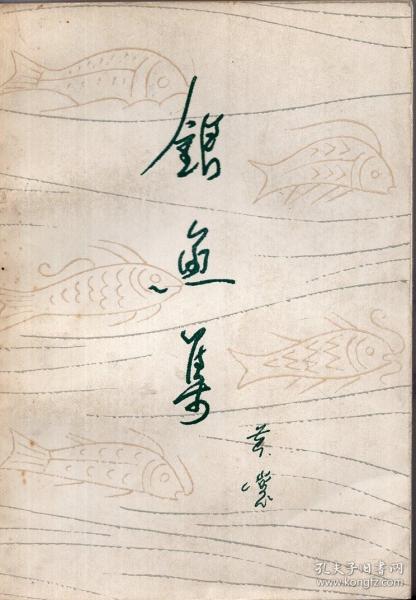 銀魚集
黄裳
孔夫子旧书网
book.kongfz.com